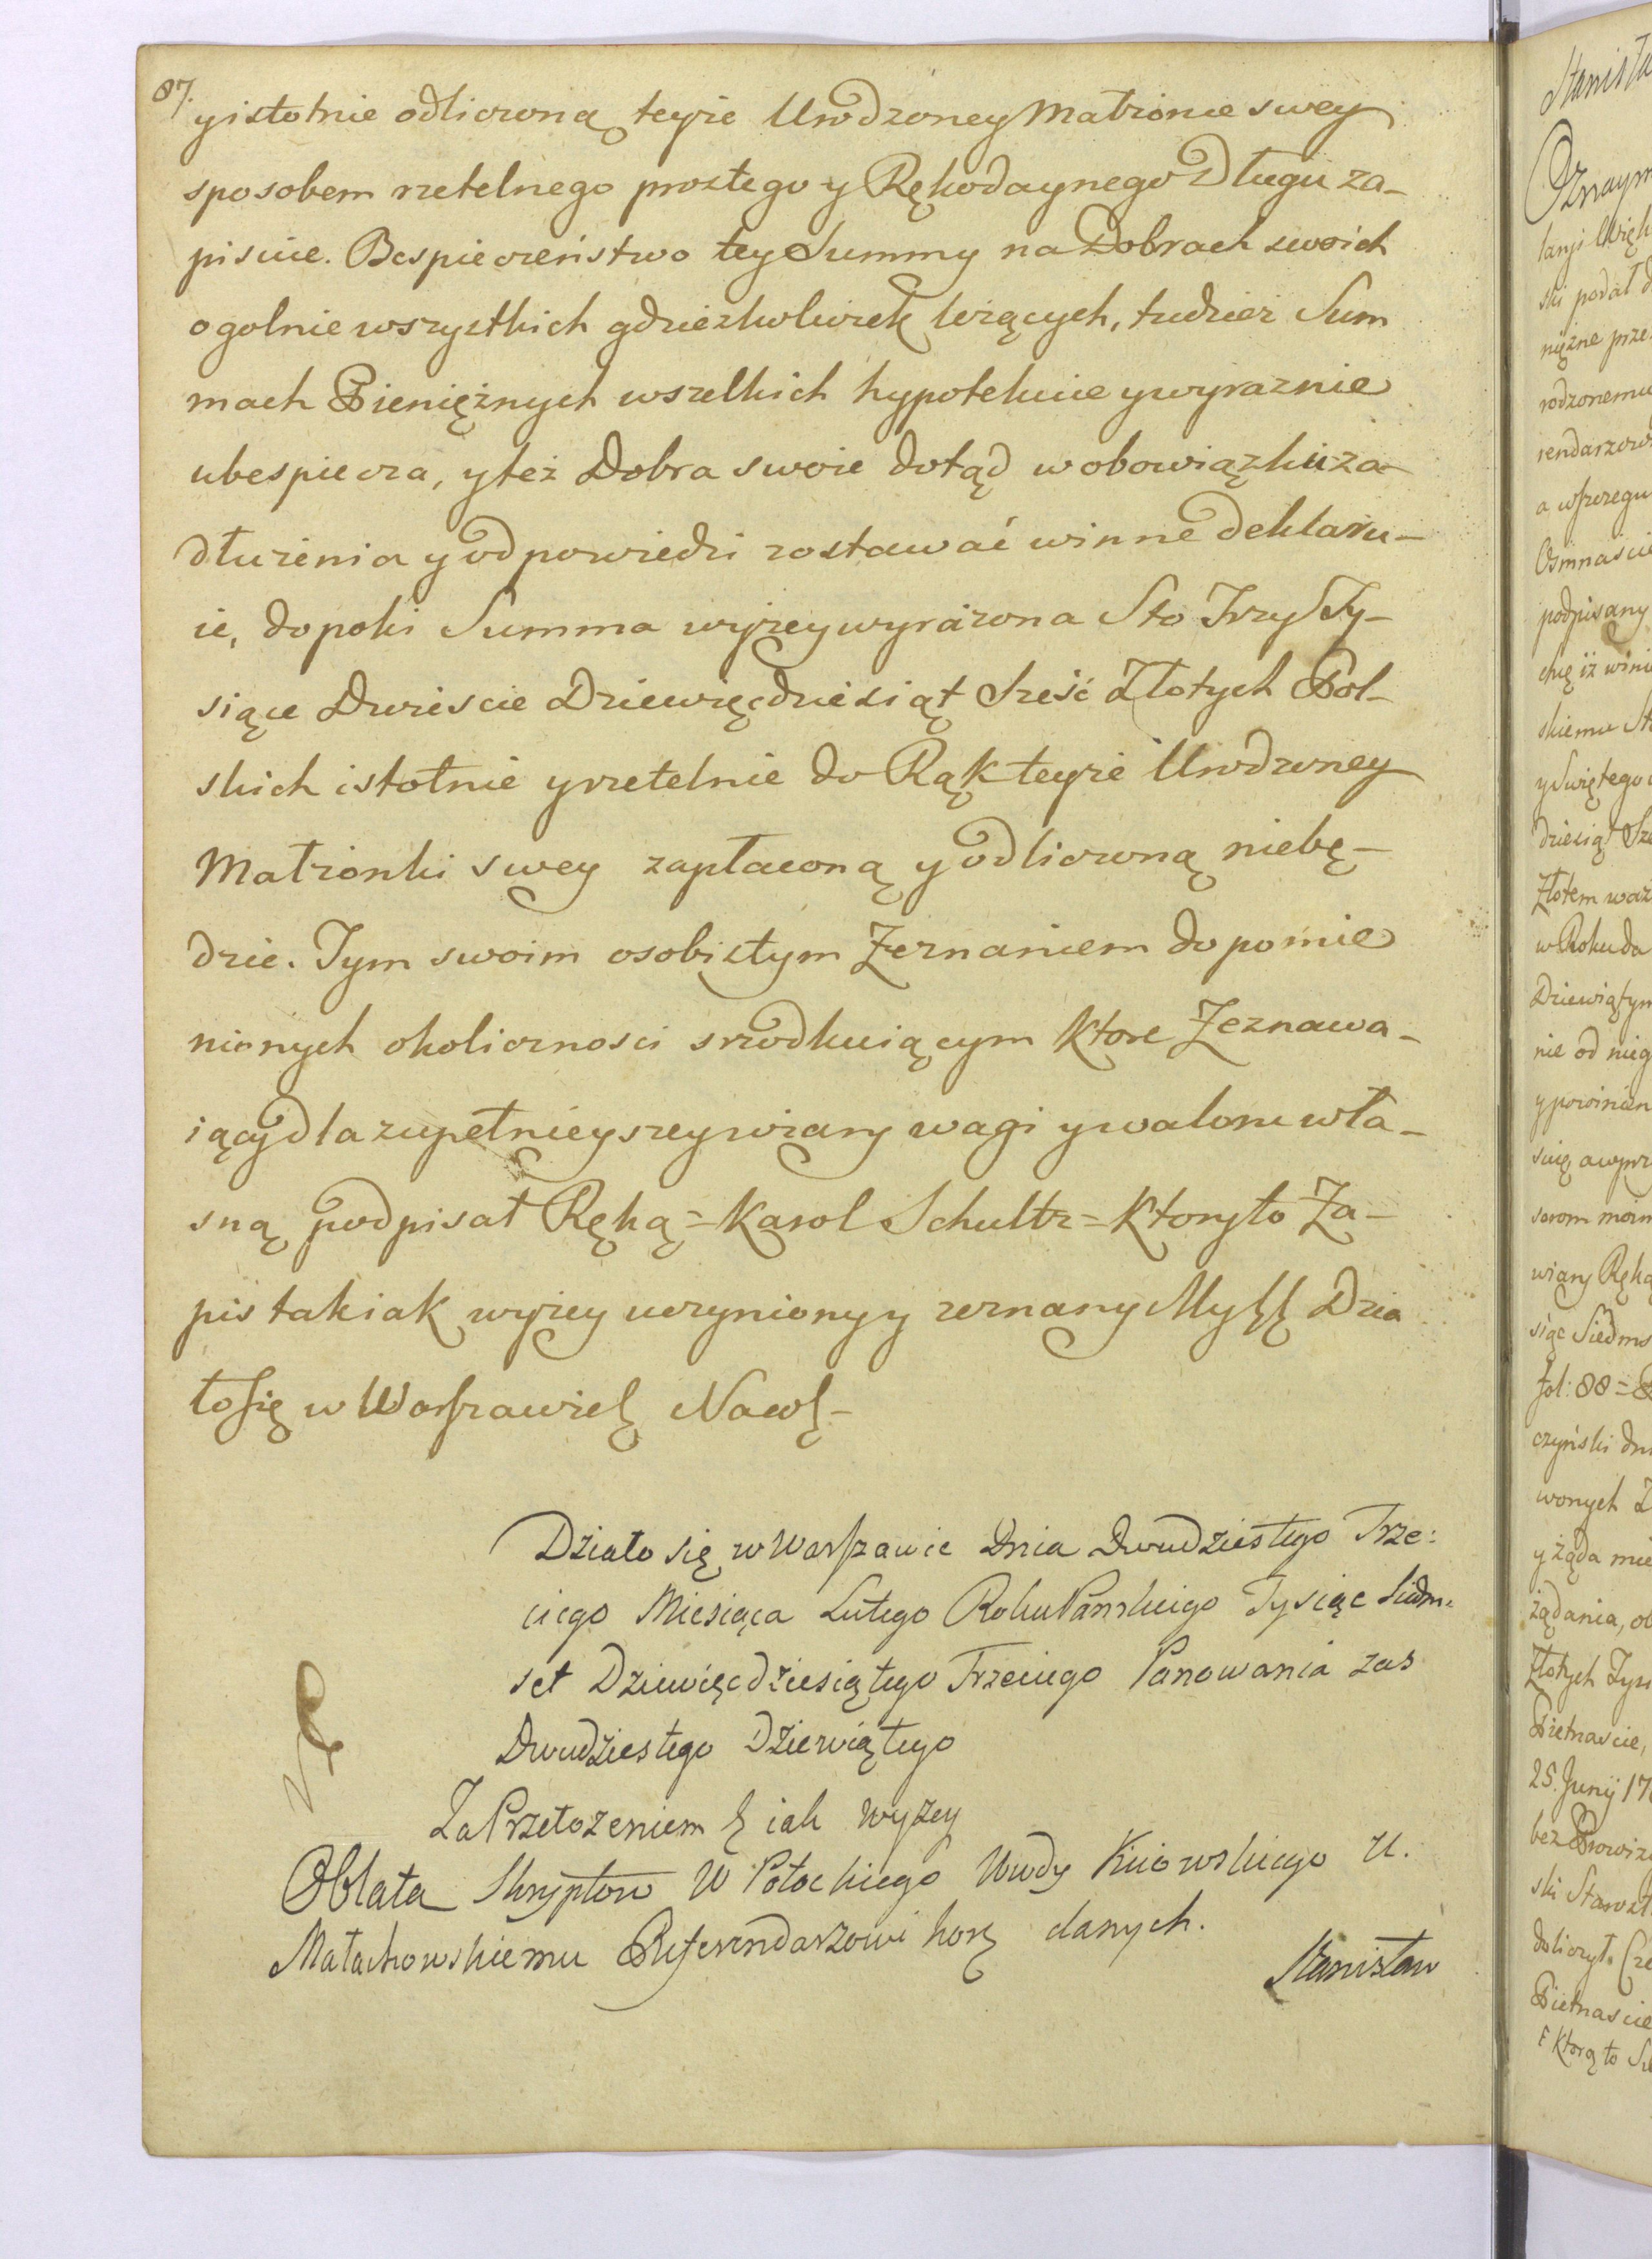 87.
y istotnie odliczoną teyże Urodzoney Małżonce swey
sposobem rzetelnego prostego y Rękodaynego Długu za-
pisuie. Bespieczeństwo tey Summy na Dobrach swoich
ogolnie wszystkich gdzieżkolwiek leżących, tudzież Sum
mach Pieniężnych wszelkich hypotekuie y wyraznie
ubespiecza, y też Dobra swoie dotąd w obowiązku za-
dłużenia y odpowiedzi zostawać winne deklaru-
ie, dopoki Summa wyżey wyrażona Sto Trzy Ty-
siące Dwieście Dziewięcdziesiąt Sześć Złotych Pol-
skich istotnie y rzetelnie do Rąk teyże Urodzoney
Małżonki swey zapłaconą y odliczoną niebę-
dzie. Tym swoim osobistym Zeznaniem do pomie
nionych okoliczności srzodkuiącym które Zeznawa-
iący dla zupełnieyszey wiary wagi y waloru wła-
sną podpisał Ręką = Karol Schultz = Ktory to Za-
pis tak iak wyżey uczyniony y zeznany My Dzia
ło się w Warszawie Nawę-
Działo się w Warszawie Dnia Dwudziestego Trze:
ciego Miesiąca Lutego Roku Pańskiego Tysiąc Siedm-
set Dziewięcdziesiątego Trzeciego Panowania zas
Dwudziestego Dziewiątego
Za Przełożeniem iak wyzey
Oblata Skryptow W Potockiego Wwdy Kiiowskiego U.
Małachowskiemu Referendarzowi kor danych.
Stanisław
Stanisła
Oznaym
lanyi Więk
ski podał d
niężne prze
rodzonemu
rendarzow
a wszczegu
Osmnascie
podpisany
chę iż winie
skiemu St
y Swiętego
dziesiąt Sze
Złotem waż
w Roku da
Dziewiątym
nie od nieg
y powinien
scię a wprz
sorom moim
wiary Ręką
siąc Siedms
fol: 88 =
czyński dn
wonych Z
y żąda mie
żądania, ob
Złotych Tysi
Pietnascie,
25. Junij 17
bez Prowiz
ski Starost
doliczył. Cze
Pietnascie
Ktorą to Su